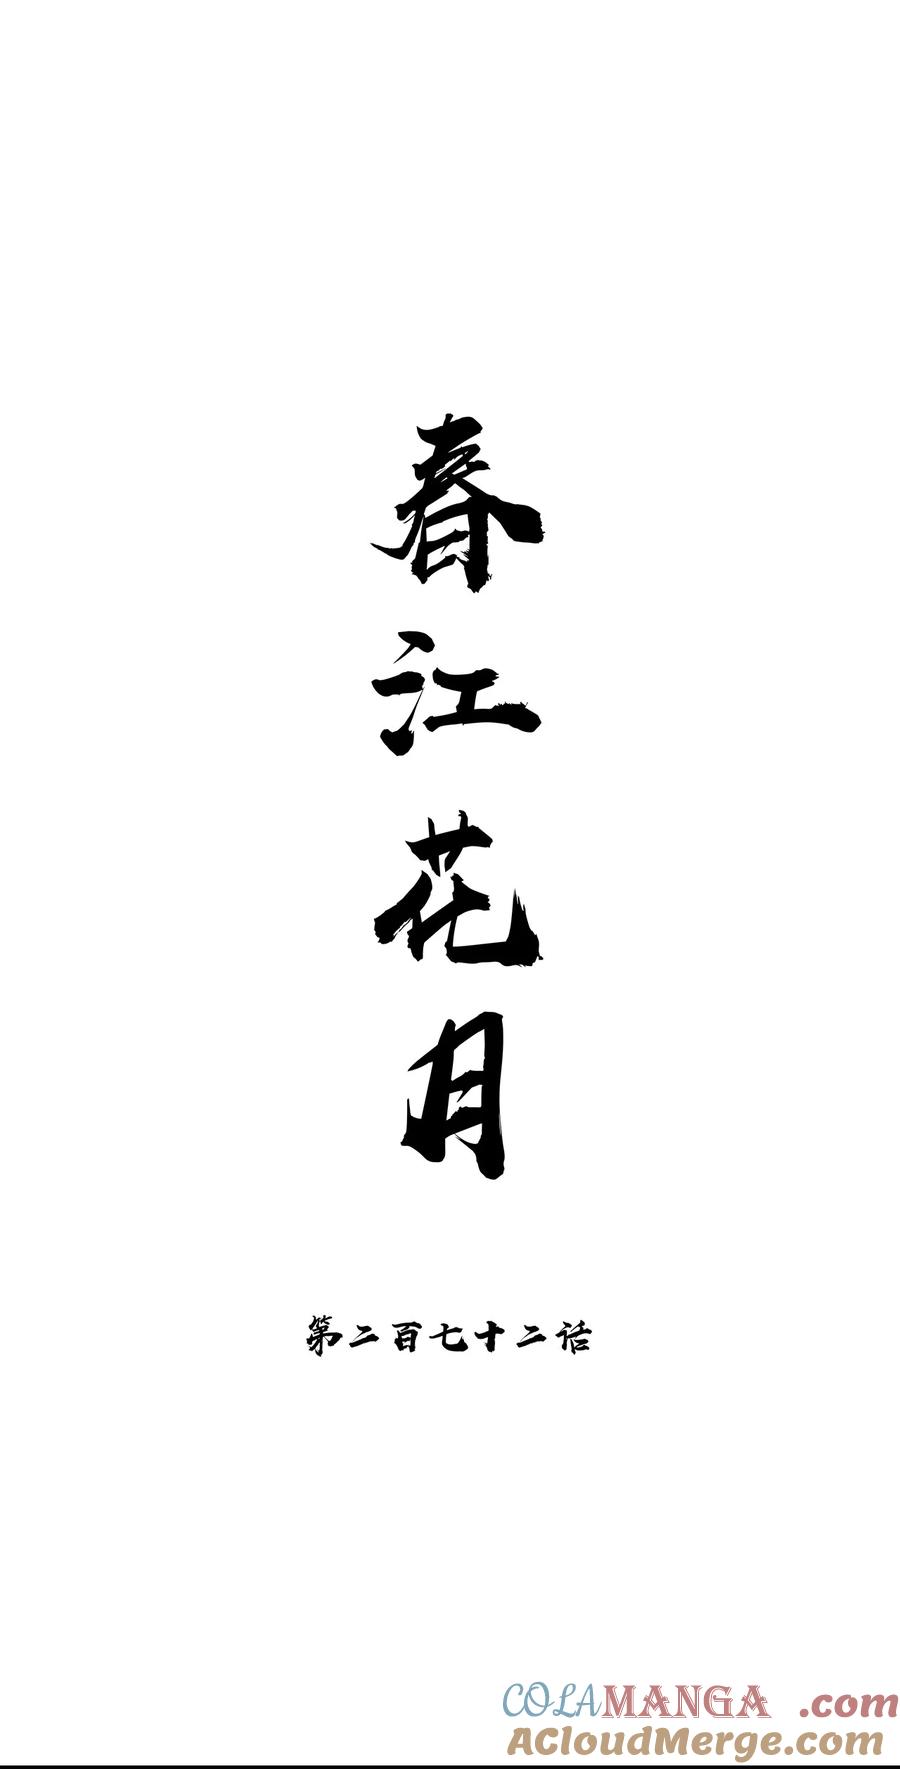 春江花月
第二百七十二话
COLAMANGA.com
ACloudMerge.com